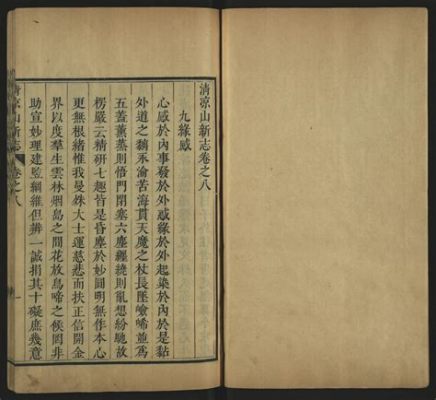 清涼山新志卷之八
九緣感
心感於內事發於外感緣於外起染於內於是黏
外道之鷊汞淪苦海貫天魔之杖長匪噞喁並為
五蓋薰蒸則悟門閉塞六塵經繞則亂想紛馳故
楞嚴云精研七趣皆是昏塵於妙圓明無作本心
更無根緒惟我曼殊大士運慈悲而扶正信開金
界以度羣生雲林烟島之間花放鳥啼之候罔非
助宣妙理建監綱維但辦一誠捐其十礙庶幾意
清涼山新志
卷之八
一